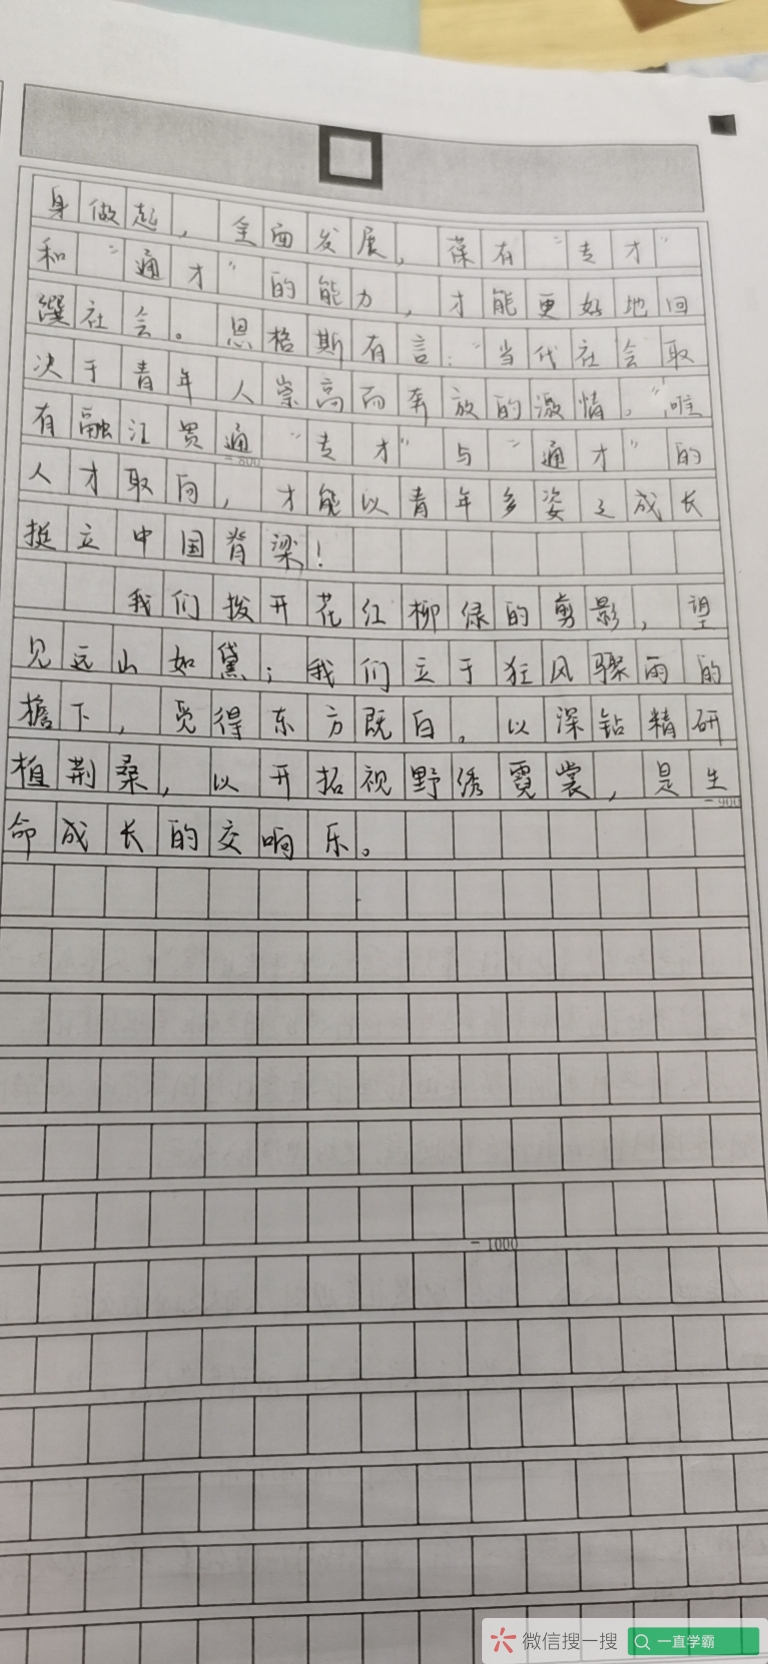 身做起，全面发展，葆有“专才”
和“通才”的能力，才能更好地回
馔社会。恩格斯有言：“当代社会取
决于青年人崇高而奔放的激情。”唯
有融汇贯通“专才”与“通才”的
-800
人才取向，才能以青年多姿之成长
挺立中国脊梁！
我们拨开花红柳绿的剪影，望
见远山如黛；我们立于狂风骤雨的
檐下，觉得东方既白。以深钻精研
植荆桑，以开拓视野绣霓裳，是生
-900
命成长的交响乐。
-1000
微信搜一搜
一直学霸